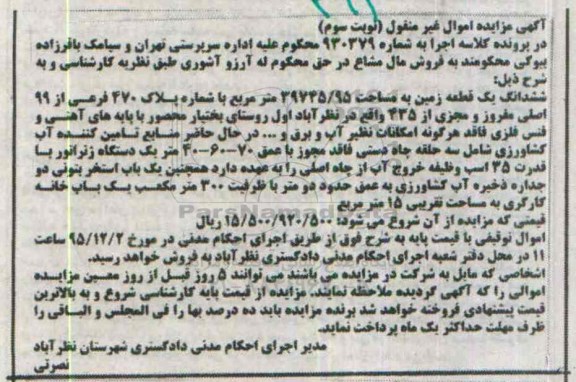 آگهی مزایده اموال غیر منقول (نوبت سوم)
در پرونده کلاسه اجرا به شماره ۹۳۰۳۷۹ محکوم علیه اداره سرپرستی تهران و سیامک باقرزاده
بیوکی محکومند به فروش مال مشاع در حق محکوم له آرزو آشوری طبق نظریه کارشناسی و به
شرح ذیل:
ششدانگ یک قطعه زمین به مساحت ۳۹۷۴۵/۹۵ متر مربع با شماره پلاک ۴۷۰ فرعی از ۹۹
اصلی مفروز و مجزی از ۴۳۵ واقع در نظرآباد اول روستای بختیار محصور با پایه های آهنی و
فنس فلزی فاقد هرگونه امکانات نظیر آب و برق و ... در حال حاضر منابع تامین کننده آب
کشاورزی شامل سه حلقه چاه دستی فاقد مجوز با عمق ۷۰-۶۰-۴۰ متر یک دستگاه ژنراتور با
قدرت ۳۵ اسب وظیفه خروج آب از چاه اصلی را به عهده دارد همچنین یک باب استخر بتونی دو
جداره ذخیره آب کشاورزی به عمق حدود دو متر با ظرفیت ۳۰۰ متر مکعب یک باب خانه
کارگری به مساحت تقریبی ۱۵ متر مربع
قیمتی که مزایده از آن شروع می‌شود: ۱۵/۵۰۰/۹۲۰/۵۰۰ ریال
اموال توقیفی با قیمت پایه به شرح فوق از طریق اجرای احکام مدنی در مورخ ۹۵/۱۲/۲ ساعت
۱۱ در محل دفتر شعبه اجرای احکام مدنی دادگستری نظرآباد به فروش خواهد رسید.
اشخاصی که مایل به شرکت در مزایده می باشند می توانند ۵ روز قبل از روز معین مزایده
اموالی را که آگهی گردیده ملاحظه نمایند. مزایده از قیمت پایه کارشناسی شروع و به بالاترین
قیمت پیشنهادی فروخته خواهد شد برنده مزایده باید ده درصد بها را فی المجلس و الباقی را
ظرف مهلت حداکثر یک ماه پرداخت نماید.
مدیر اجرای احکام مدنی دادگستری شهرستان نظرآباد
نصرتی